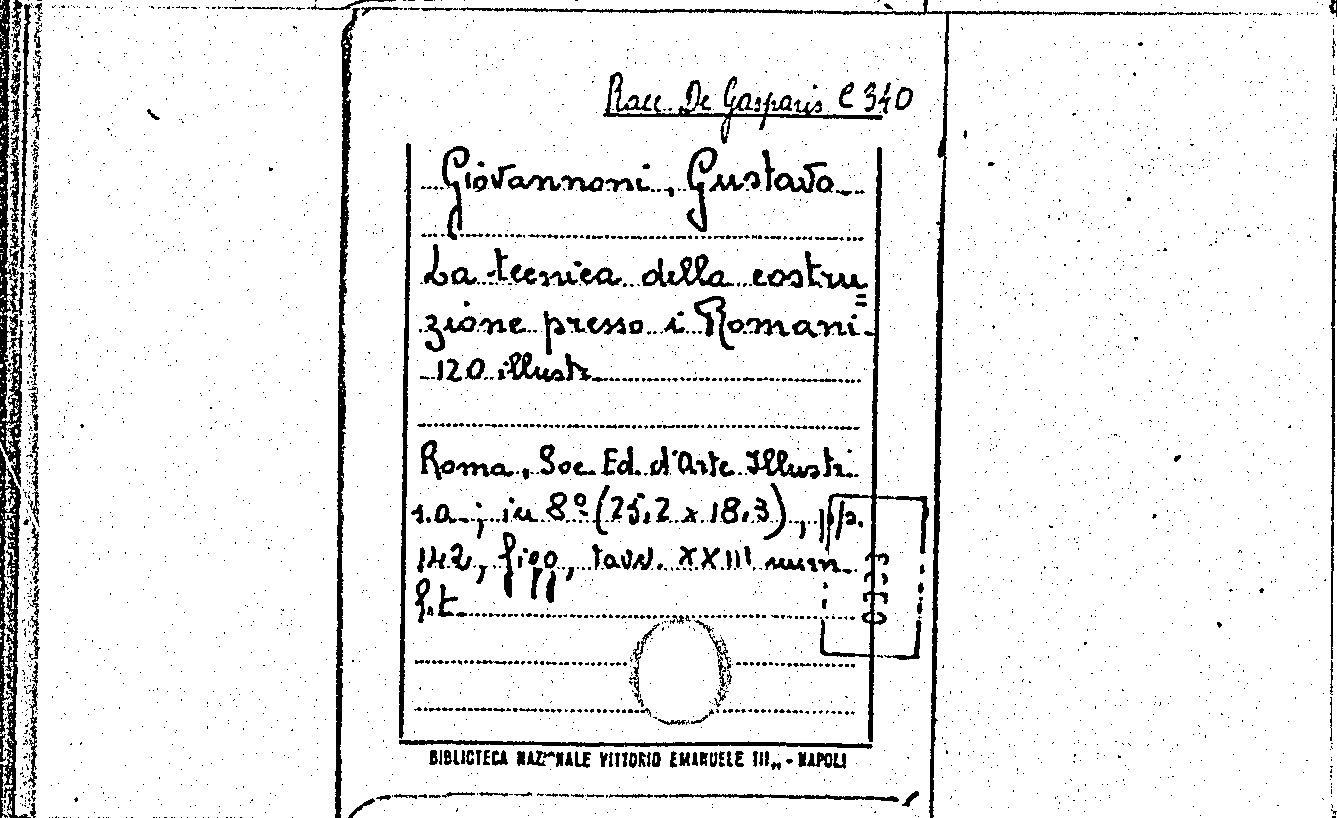 Racc. De Gasparis C 340
Giovannoni, Gustavo
La tecnica della costru=
zione presso i Romani.
120 illustr.
Roma, Soc. Ed. d'Arte Illustr.
s.a.; in 8º (25,2 x 18,3),
142, figg., tavv. XXIII num.
f.t.
BIBLIOTECA NAZIONALE VITTORIO EMANUELE III„ - NAPOLI